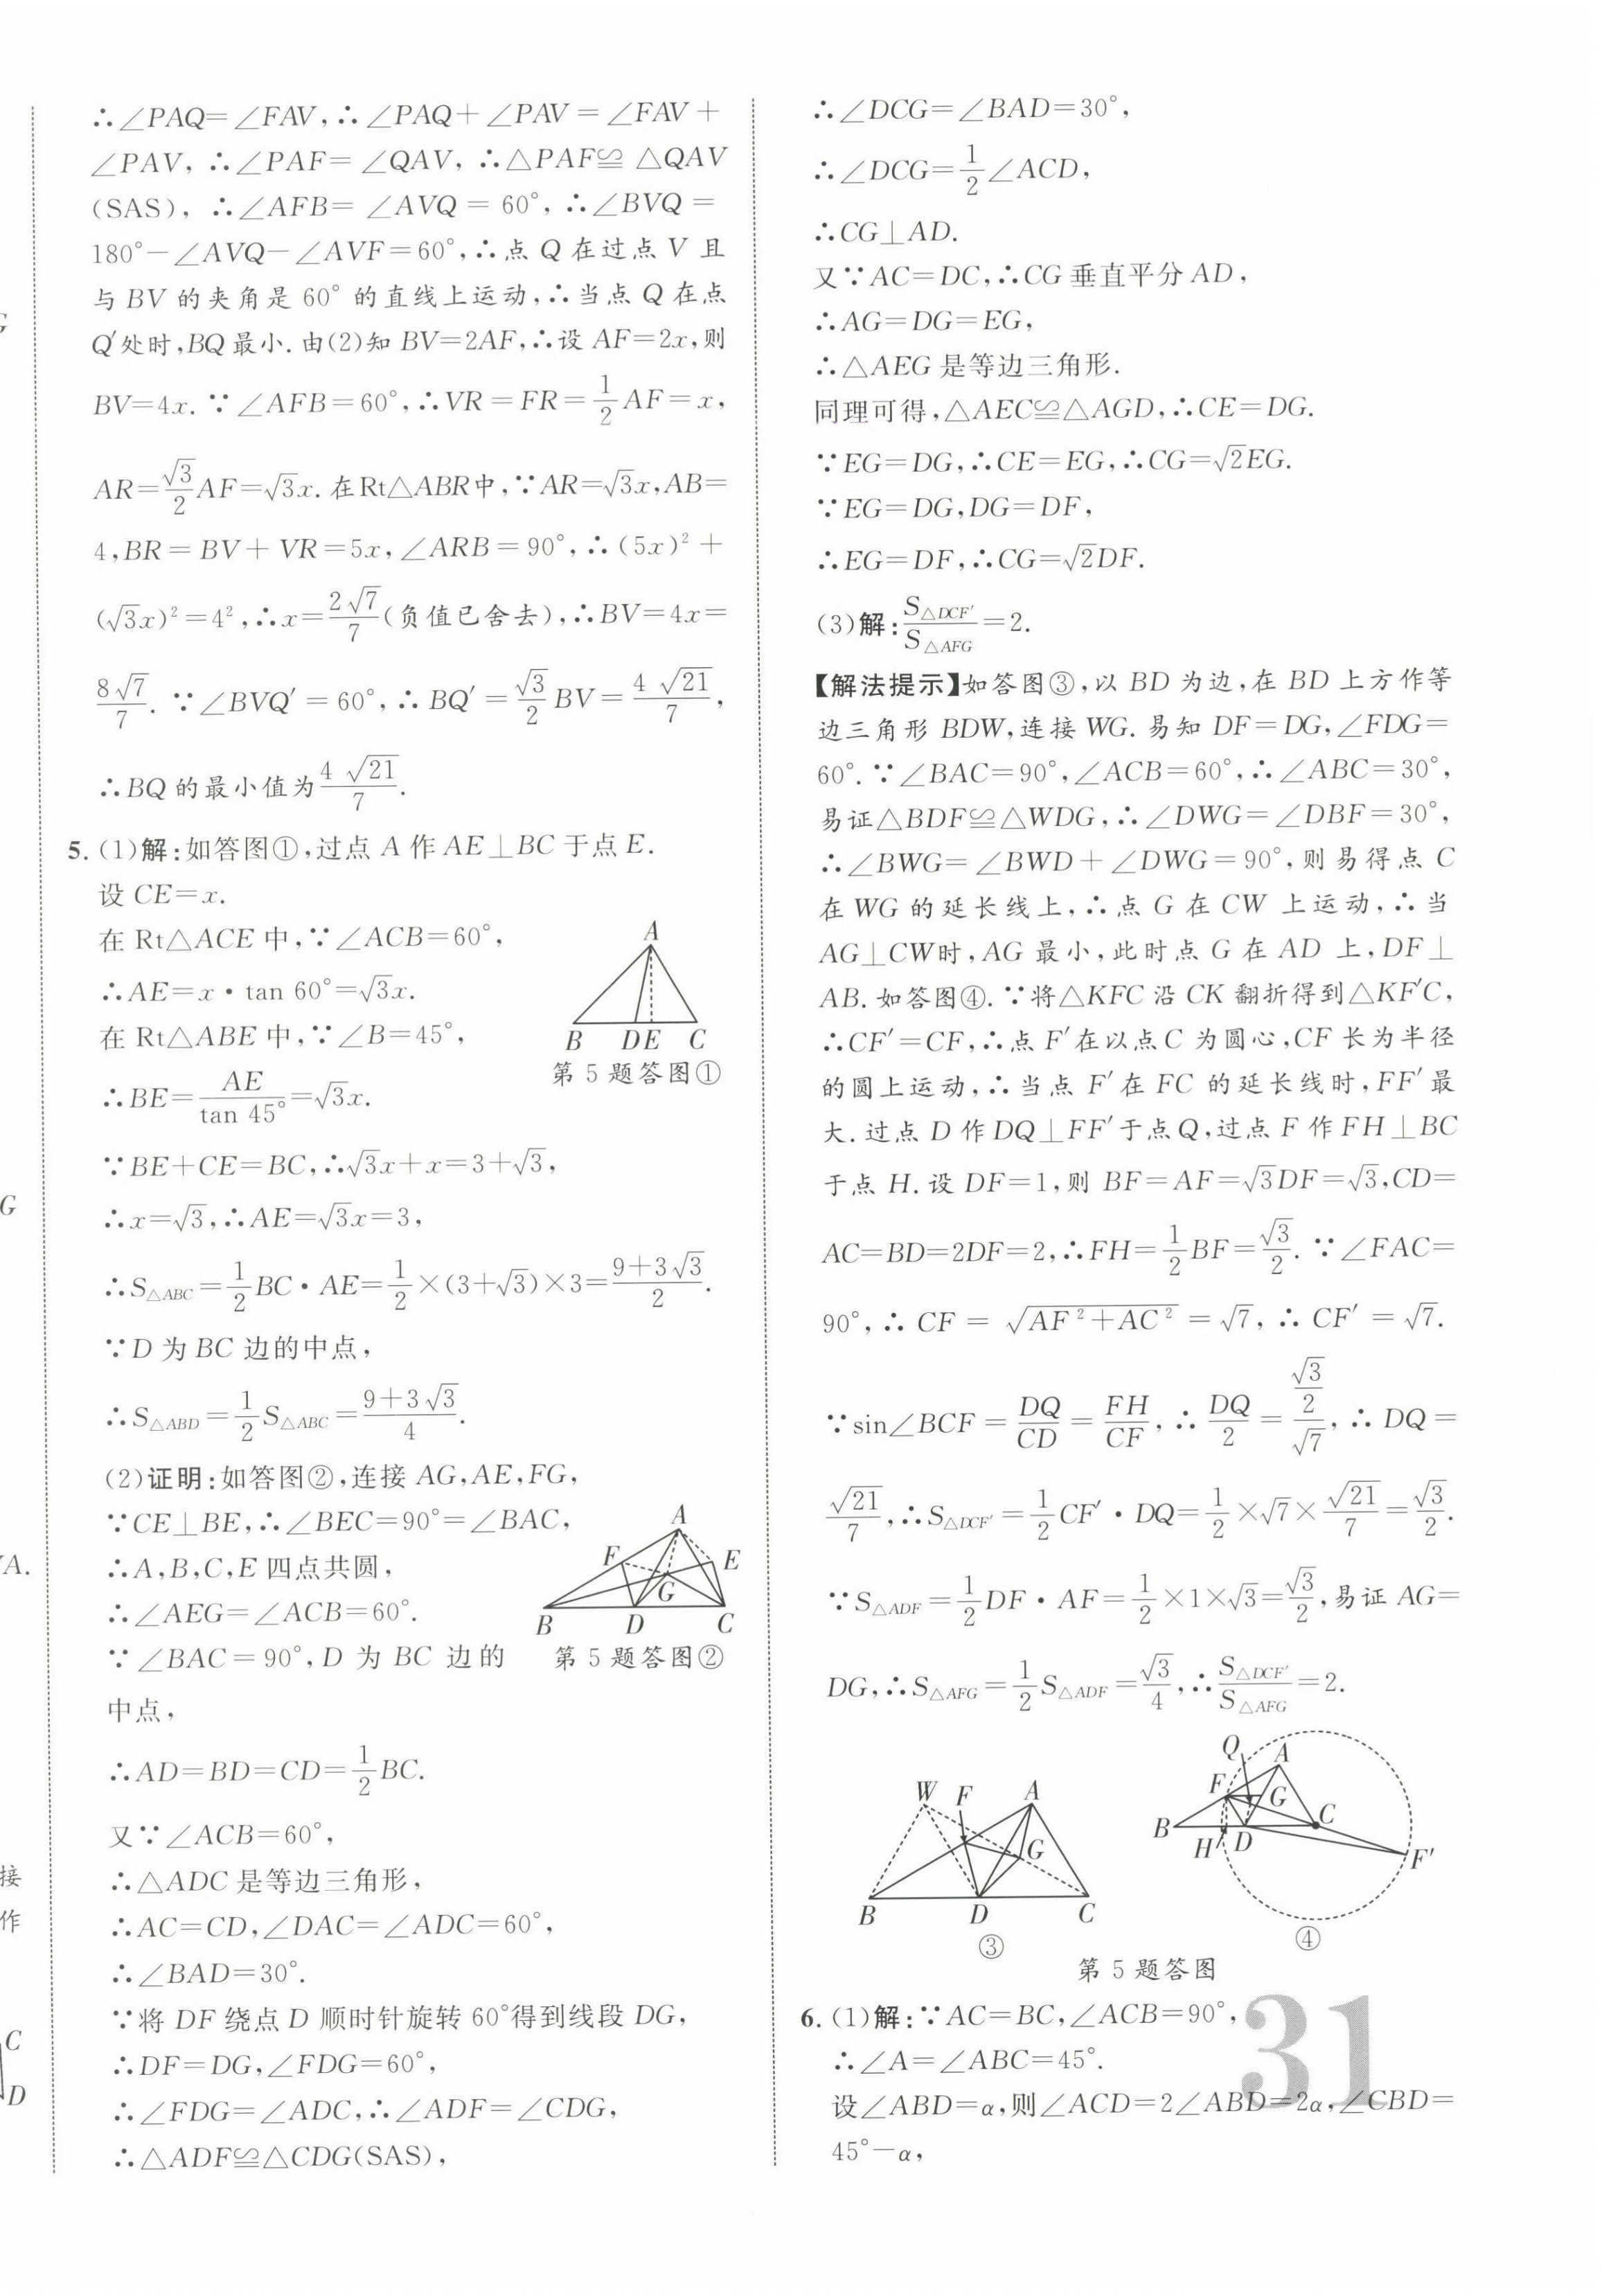 ∴∠PAQ=∠FAV,∴∠PAQ+∠PAV=∠FAV+
∠PAV,∴∠PAF=∠QAV,∴△PAF≌△QAV
(SAS),∴∠AFB=∠AVQ=60°,∴∠BVQ=
180°-∠AVQ-∠AVF=60°,∴点 Q 在过点 V 且
与 BV 的夹角是 60° 的直线上运动,∴当点 Q 在点
Q′处时,BQ 最小.由(2)知 BV=2AF,∴设 AF=2x,则
BV=4x.∵∠AFB=60°,∴VR=FR=1/2 AF=x,
AR=√3/2 AF=√3x.在Rt△ABR中,∵AR=√3x,AB=
4,BR=BV+VR=5x,∠ARB=90°,∴(5x)²+
(√3x)²=4²,∴x=2√7/7(负值已舍去),∴BV=4x=
8√7/7.∵∠BVQ′=60°,∴BQ′=√3/2 BV=4√21/7,
∴BQ 的最小值为4√21/7.
5.(1)解:如答图①,过点 A 作 AE⊥BC 于点 E.
设 CE=x.
在 Rt△ACE 中,∵∠ACB=60°,
∴AE=x·tan 60°=√3x.
在 Rt△ABE 中,∵∠B=45°,
∴BE=AE/tan 45°=√3x.
A
B D E C
第 5 题答图①
∵BE+CE=BC,∴√3x+x=3+√3,
∴x=√3,∴AE=√3x=3,
∴S△ABC=1/2 BC·AE=1/2×(3+√3)×3=(9+3√3)/2.
∵D 为 BC 边的中点,
∴S△ABD=1/2 S△ABC=(9+3√3)/4.
(2)证明:如答图②,连接 AG,AE,FG,
∵CE⊥BE,∴∠BEC=90°=∠BAC,
∴A,B,C,E 四点共圆,
∴∠AEG=∠ACB=60°.
∵∠BAC=90°,D 为 BC 边的
中点,
A
F E
G
B D C
第 5 题答图②
∴AD=BD=CD=1/2 BC.
又∵∠ACB=60°,
∴△ADC 是等边三角形,
∴AC=CD,∠DAC=∠ADC=60°,
∴∠BAD=30°.
∵将 DF 绕点 D 顺时针旋转 60°得到线段 DG,
∴DF=DG,∠FDG=60°,
∴∠FDG=∠ADC,∴∠ADF=∠CDG,
∴△ADF≌△CDG(SAS),
∴∠DCG=∠BAD=30°,
∴∠DCG=1/2∠ACD,
∴CG⊥AD.
又∵AC=DC,∴CG 垂直平分 AD,
∴AG=DG=EG,
∴△AEG 是等边三角形.
同理可得,△AEC≌△AGD,∴CE=DG.
∵EG=DG,∴CE=EG,∴CG=√2EG.
∵EG=DG,DG=DF,
∴EG=DF,∴CG=√2DF.
(3)解:S△DCF′/S△AFG=2.
【解法提示】如答图③,以 BD 为边,在 BD 上方作等
边三角形 BDW,连接 WG.易知 DF=DG,∠FDG=
60°.∵∠BAC=90°,∠ACB=60°,∴∠ABC=30°,
易证△BDF≌△WDG,∴∠DWG=∠DBF=30°,
∴∠BWG=∠BWD+∠DWG=90°,则易得点 C
在 WG 的延长线上,∴点 G 在 CW 上运动,∴当
AG⊥CW时,AG 最小,此时点 G 在 AD 上,DF⊥
AB.如答图④.∵将△KFC 沿 CK 翻折得到△KF′C,
∴CF′=CF,∴点 F′在以点 C 为圆心,CF 长为半径
的圆上运动,∴当点 F′在 FC 的延长线时,FF′最
大.过点 D 作 DQ⊥FF′于点 Q,过点 F 作 FH⊥BC
于点 H.设 DF=1,则 BF=AF=√3DF=√3,CD=
AC=BD=2DF=2,∴FH=1/2 BF=√3/2.∵∠FAC=
90°,∴CF=√(AF²+AC²)=√7,∴CF′=√7.
∵sin∠BCF=DQ/CD=FH/CF,∴DQ/2=(√3/2)/√7,∴DQ=
√21/7,∴S△DCF′=1/2 CF′·DQ=1/2×√7×√21/7=√3/2.
∵S△ADF=1/2 DF·AF=1/2×1×√3=√3/2,易证 AG=
DG,∴S△AFG=1/2 S△ADF=√3/4,∴S△DCF′/S△AFG=2.
W F A
G
B D C
③
Q A
F G C
B H D F′
④
第 5 题答图
6.(1)解:∵AC=BC,∠ACB=90°,
∴∠A=∠ABC=45°.
设∠ABD=α,则∠ACD=2∠ABD=2α,∠CBD=
45°-α,
31
G
A.
接
作
C
D